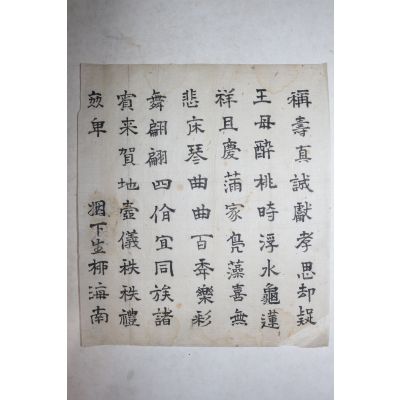 稱壽真誠獻孝思却疑
王母醉桃時浮水龜蓮
祥且慶蒲家鳧藻喜無
悲床琴曲曲百年樂彩
舞翩翩四佾宜同族諸
賓来賀地壺儀秩秩禮
下生柳海南